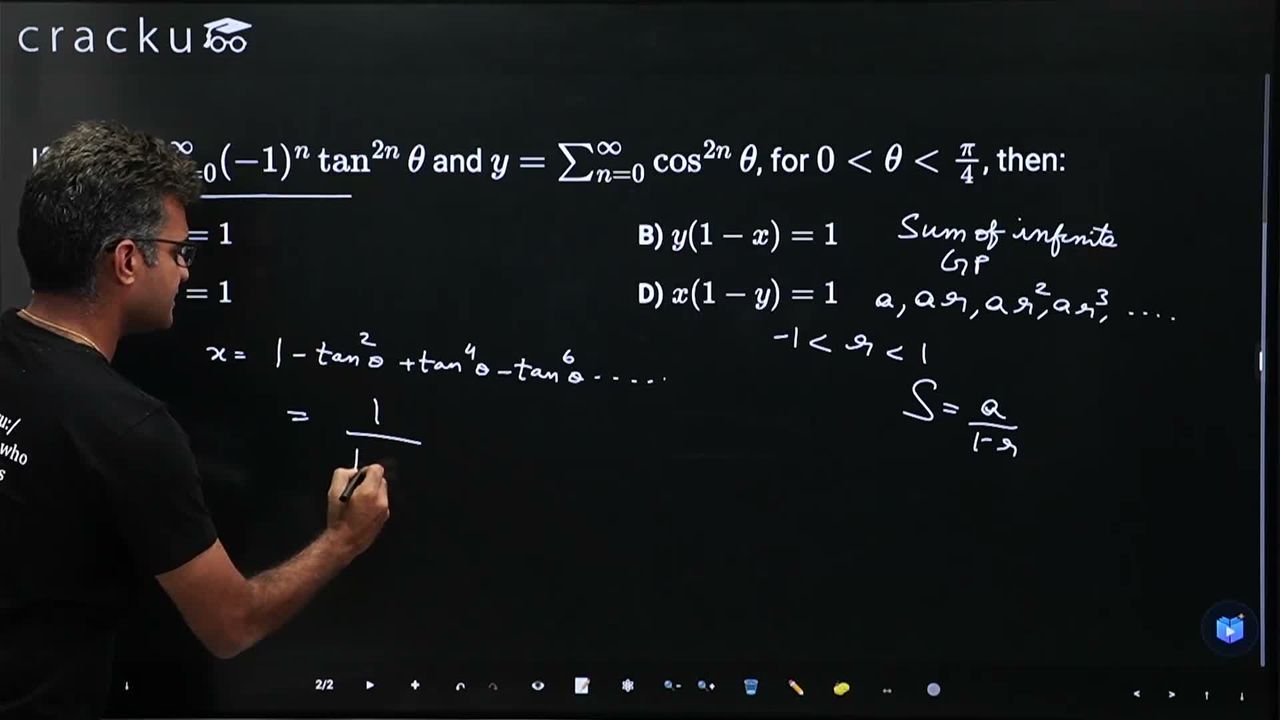 cracku
(-1)ⁿ tan²ⁿ θ and y = ∑_{n=0}^{∞} cos²ⁿ θ, for 0 < θ < π/4, then:
= 1
B) y(1 − x) = 1
= 1
D) x(1 − y) = 1
Sum of infinite
GP
a, ar, ar², ar³, ....
-1 < r < 1
S = a/(1-r)
x = 1 - tan²θ + tan⁴θ - tan⁶θ .....
= 1/1
2/2